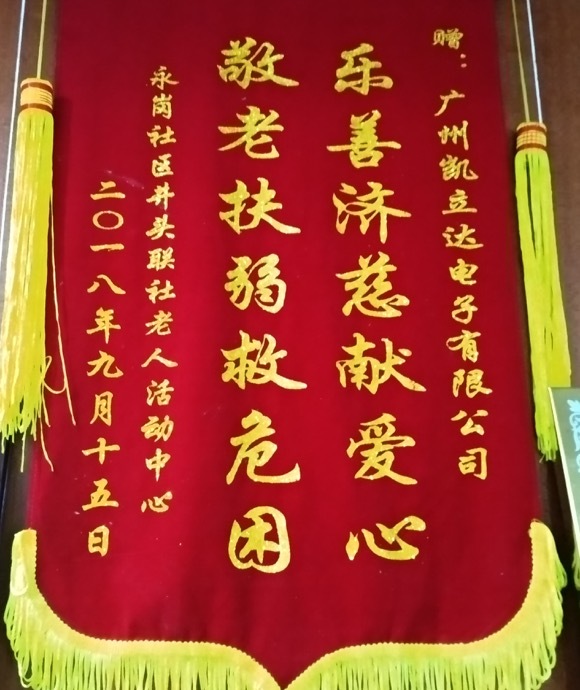 赠：广州凯立达电子有限公司
乐善济慈献爱心
敬老扶弱救危困
永岗社区井头联社老人活动中心
二〇一八年九月十五日